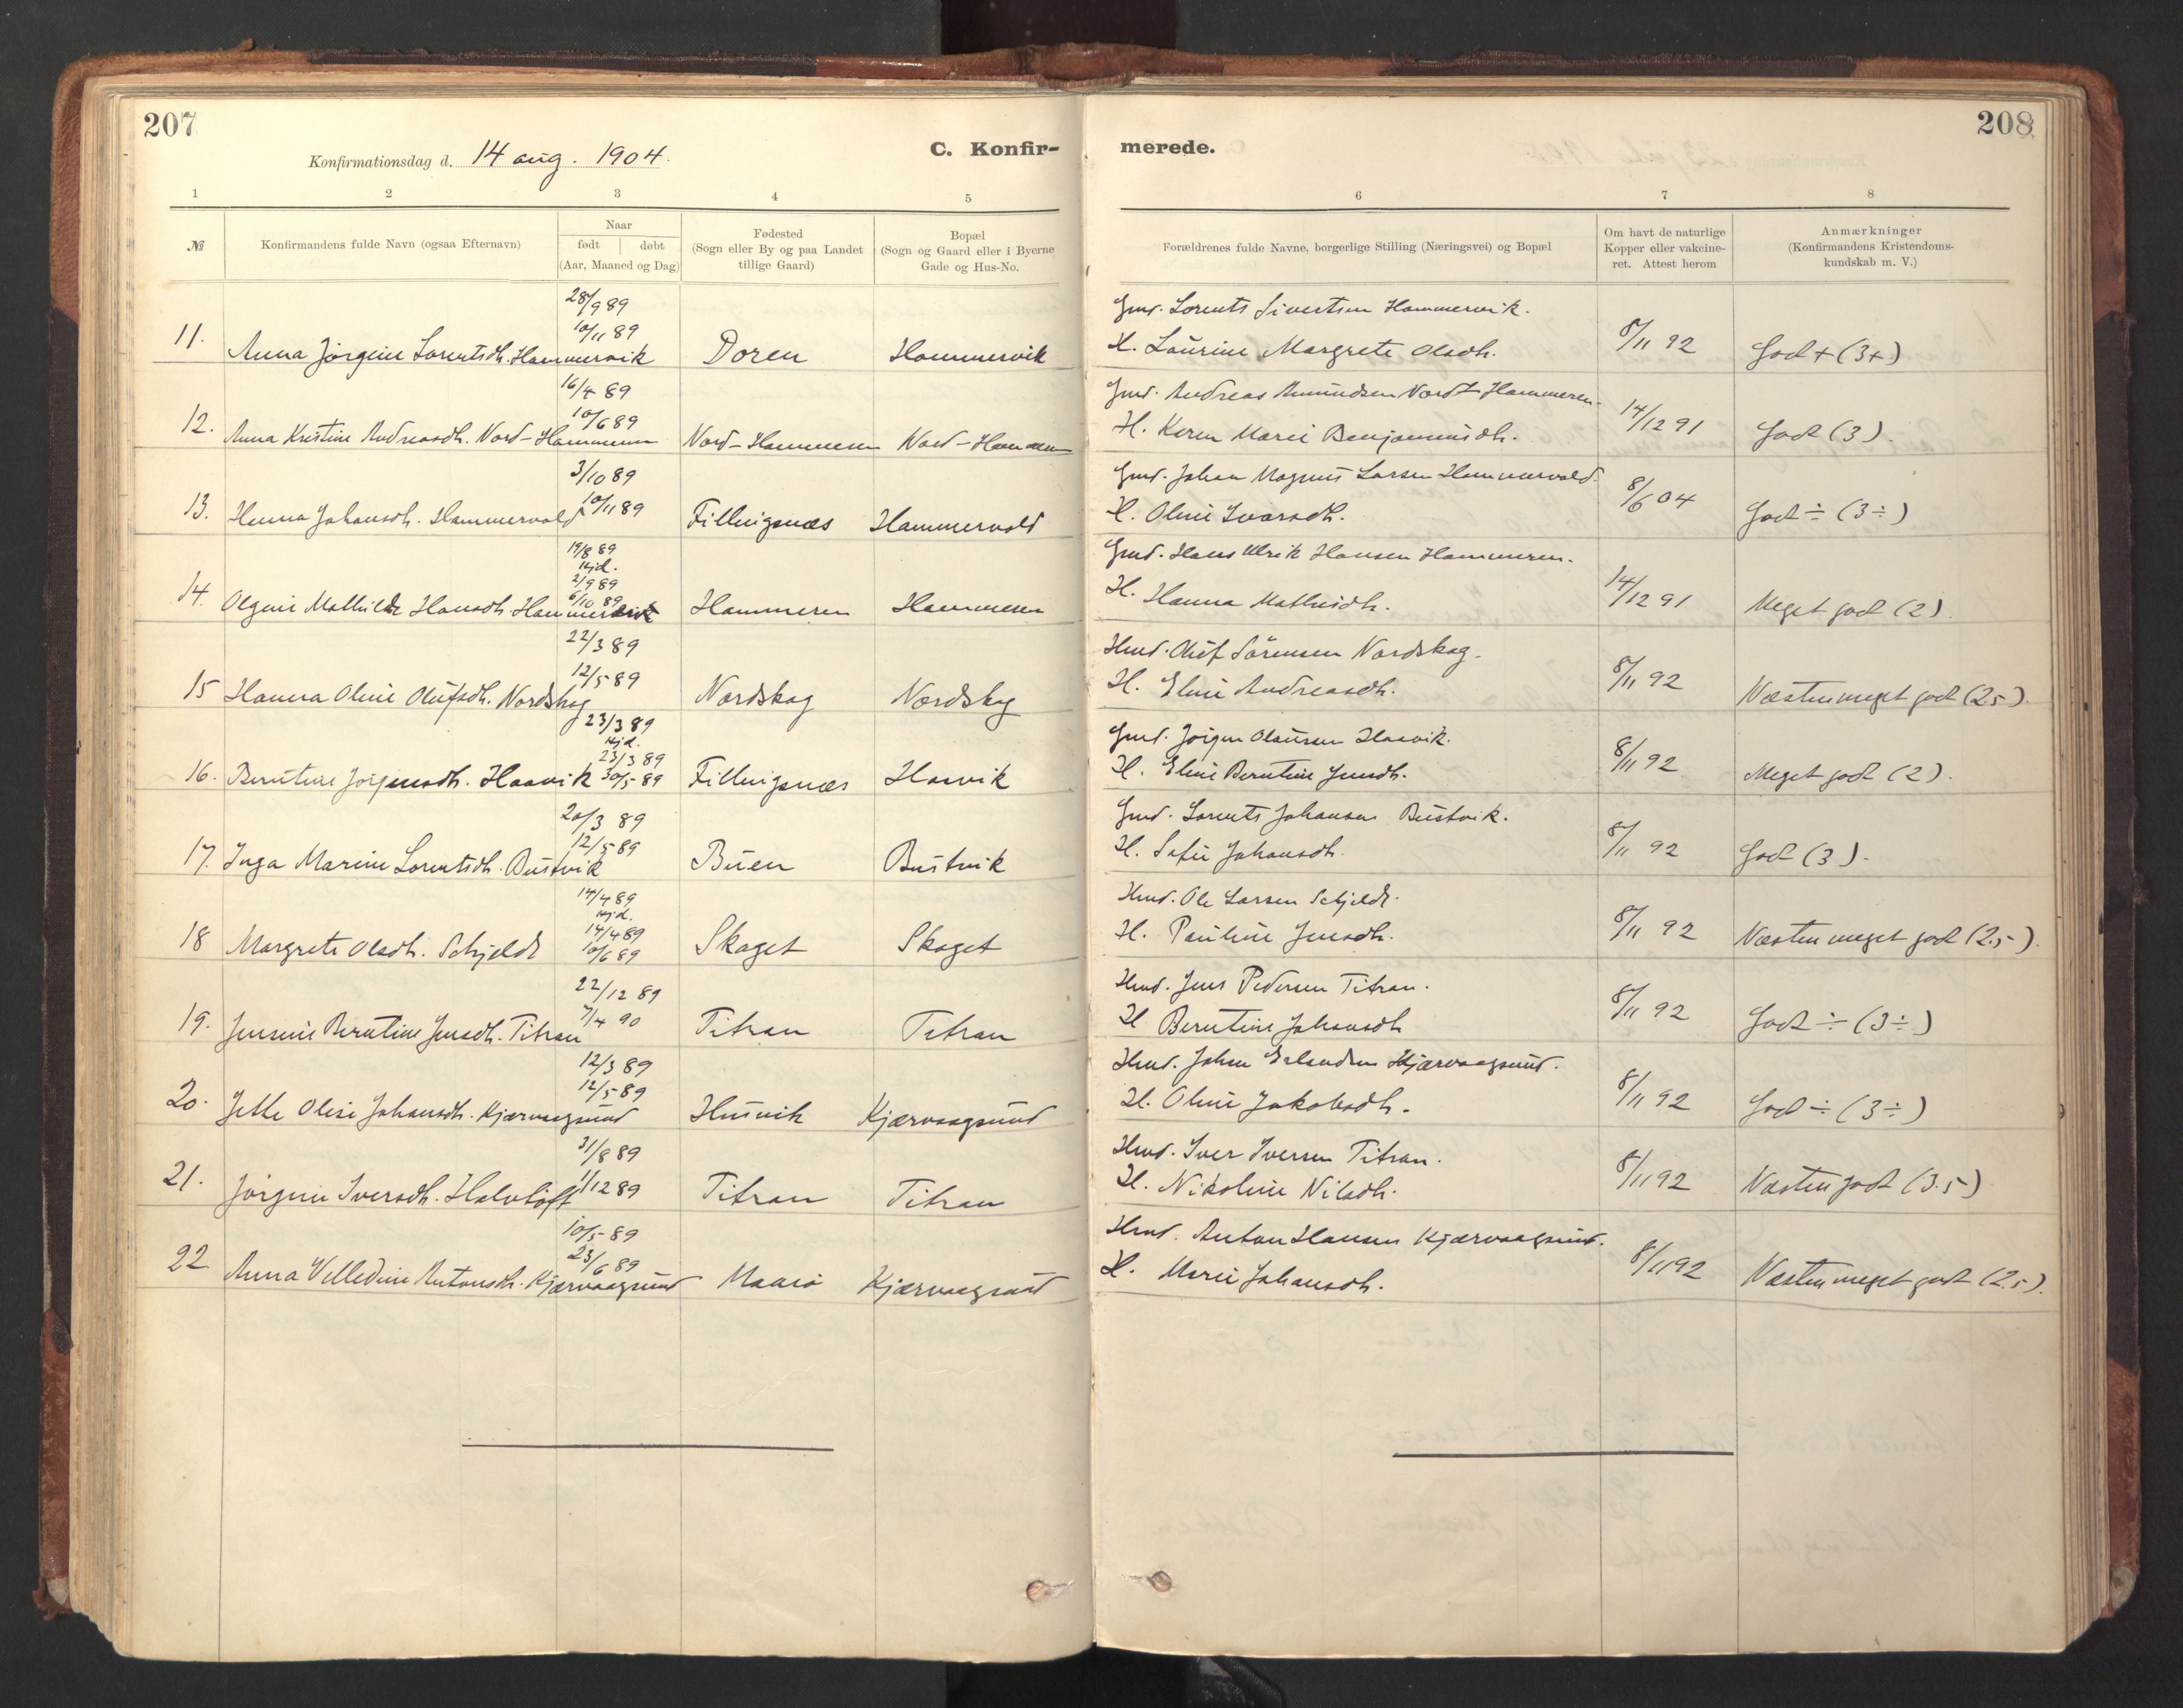 207
Konfirmationsdag d. 14 aug. 1904.
C. Konfir-
1 2 3 4 5
№
Konfirmandens fulde Navn (ogsaa Efternavn)
Naar
født døbt
(Aar, Maaned og Dag)
Fødested
(Sogn eller By og paa Landet
tillige Gaard)
Bopæl
(Sogn og Gaard eller i Byerne
Gade og Hus-No.
28/9 89
10/11 89
11. Anna Jörgine Lorentsdh. Hammervik Doren Hammervik
16/4 89
10/6 89
12. Anna Kristine Andreasdh. Nord-Hammeren Nord-Hammeren Nord-Hammeren
3/10 89
10/11 89
13. Hanna Johansdh. Hammervold Fillingsnæs Hammervold
19/8 89
Hjd.
2/9 89
6/10 89
14. Olgine Mathilde Hansdh. Hammervik Hammeren Hammeren
22/3 89
12/5 89
15 Hanna Oline Olüfsdh. Nordskag Nordskag Nordskag
23/3 89
Hjd.
23/3 89
30/5 89
16. Berntine Jörgensdh. Haavik Fillingsnæs Haavik
20/3 89
12/5 89
17. Inga Marine Lorentsdh. Bustvik Büen Bustvik
14/4 89
Hjd.
14/4 89
10/6 89
18 Margrete Olsdh. Schjelde Skaget Skaget
22/12 89
7/4 90
19. Jensine Berntine Jensdh. Titran Titran Titran
12/3 89
12/5 89
20. Jette Olise Johansdh. Kjærvaagsund Husvik Kjærvaagsund
31/8 89
1/12 89
21. Jörgine Iversdh. Halvloft Titran Titran
10/5 89
23/6 89
22 Anna Velledine Antonsdh. Kjærvaagsund Maasö Kjærvaagsund
208
merede.
6 7 8
Forældrenes fulde Navne, borgerlige Stilling (Næringsvei) og Bopæl
Om havt de naturlige
Kopper eller vakcine-
ret. Attest herom
Anmærkninger
(Konfirmandens Kristendoms-
kundskab m. V.)
Gmd. Lorents Sivertsen Hammervik.
H. Laurine Margrete Olsdh. 8/11 92 God + (3+)
Gmd. Andreas Amundsen Nord Hammeren.
H. Keren Marie Benjaminsdh. 14/12 91 God (3).
Gmd. Johan Magnus Larsen Hammervold.
H. Oline Ivarsdh. 8/6 04 God ÷ (3÷)
Gmd. Hans Ulrik Hansen Hammeren.
H. Hanna Mathisdh. 14/12 91 Meget god (2).
Hmd. Olüf Sörensen Nordskag.
H. Eline Andreasdh. 8/11 92 Næsten meget god (2.5).
Gmd. Jörgen Olaussen Haavik.
H. Eline Berntine Jensdh. 8/11 92 Meget god (2).
Gmd. Lorents Johansen Bustvik.
H. Sofie Johansdh. 8/11 92 God (3).
Hmd. Ole Larsen Schjelde.
H. Pauline Jensdh. 8/11 92 Næsten meget god (2.5).
Hmd. Jens Pedersen Titran.
H Berntine Johansdh 8/11 92 God ÷ (3÷)
Hmd. Johan Erlandsen Kjærvaagsund.
H. Oline Jakobsdh. 8/11 92 God ÷ (3÷)
Hmd. Iver Iversen Titran.
H. Nikoline Nilsdh. 8/11 92 Næsten god (3.5)
Hmd. Anton Hansen Kjærvaagsund.
H. Marie Johansdh. 8/11 92 Næsten meget god (2.5).